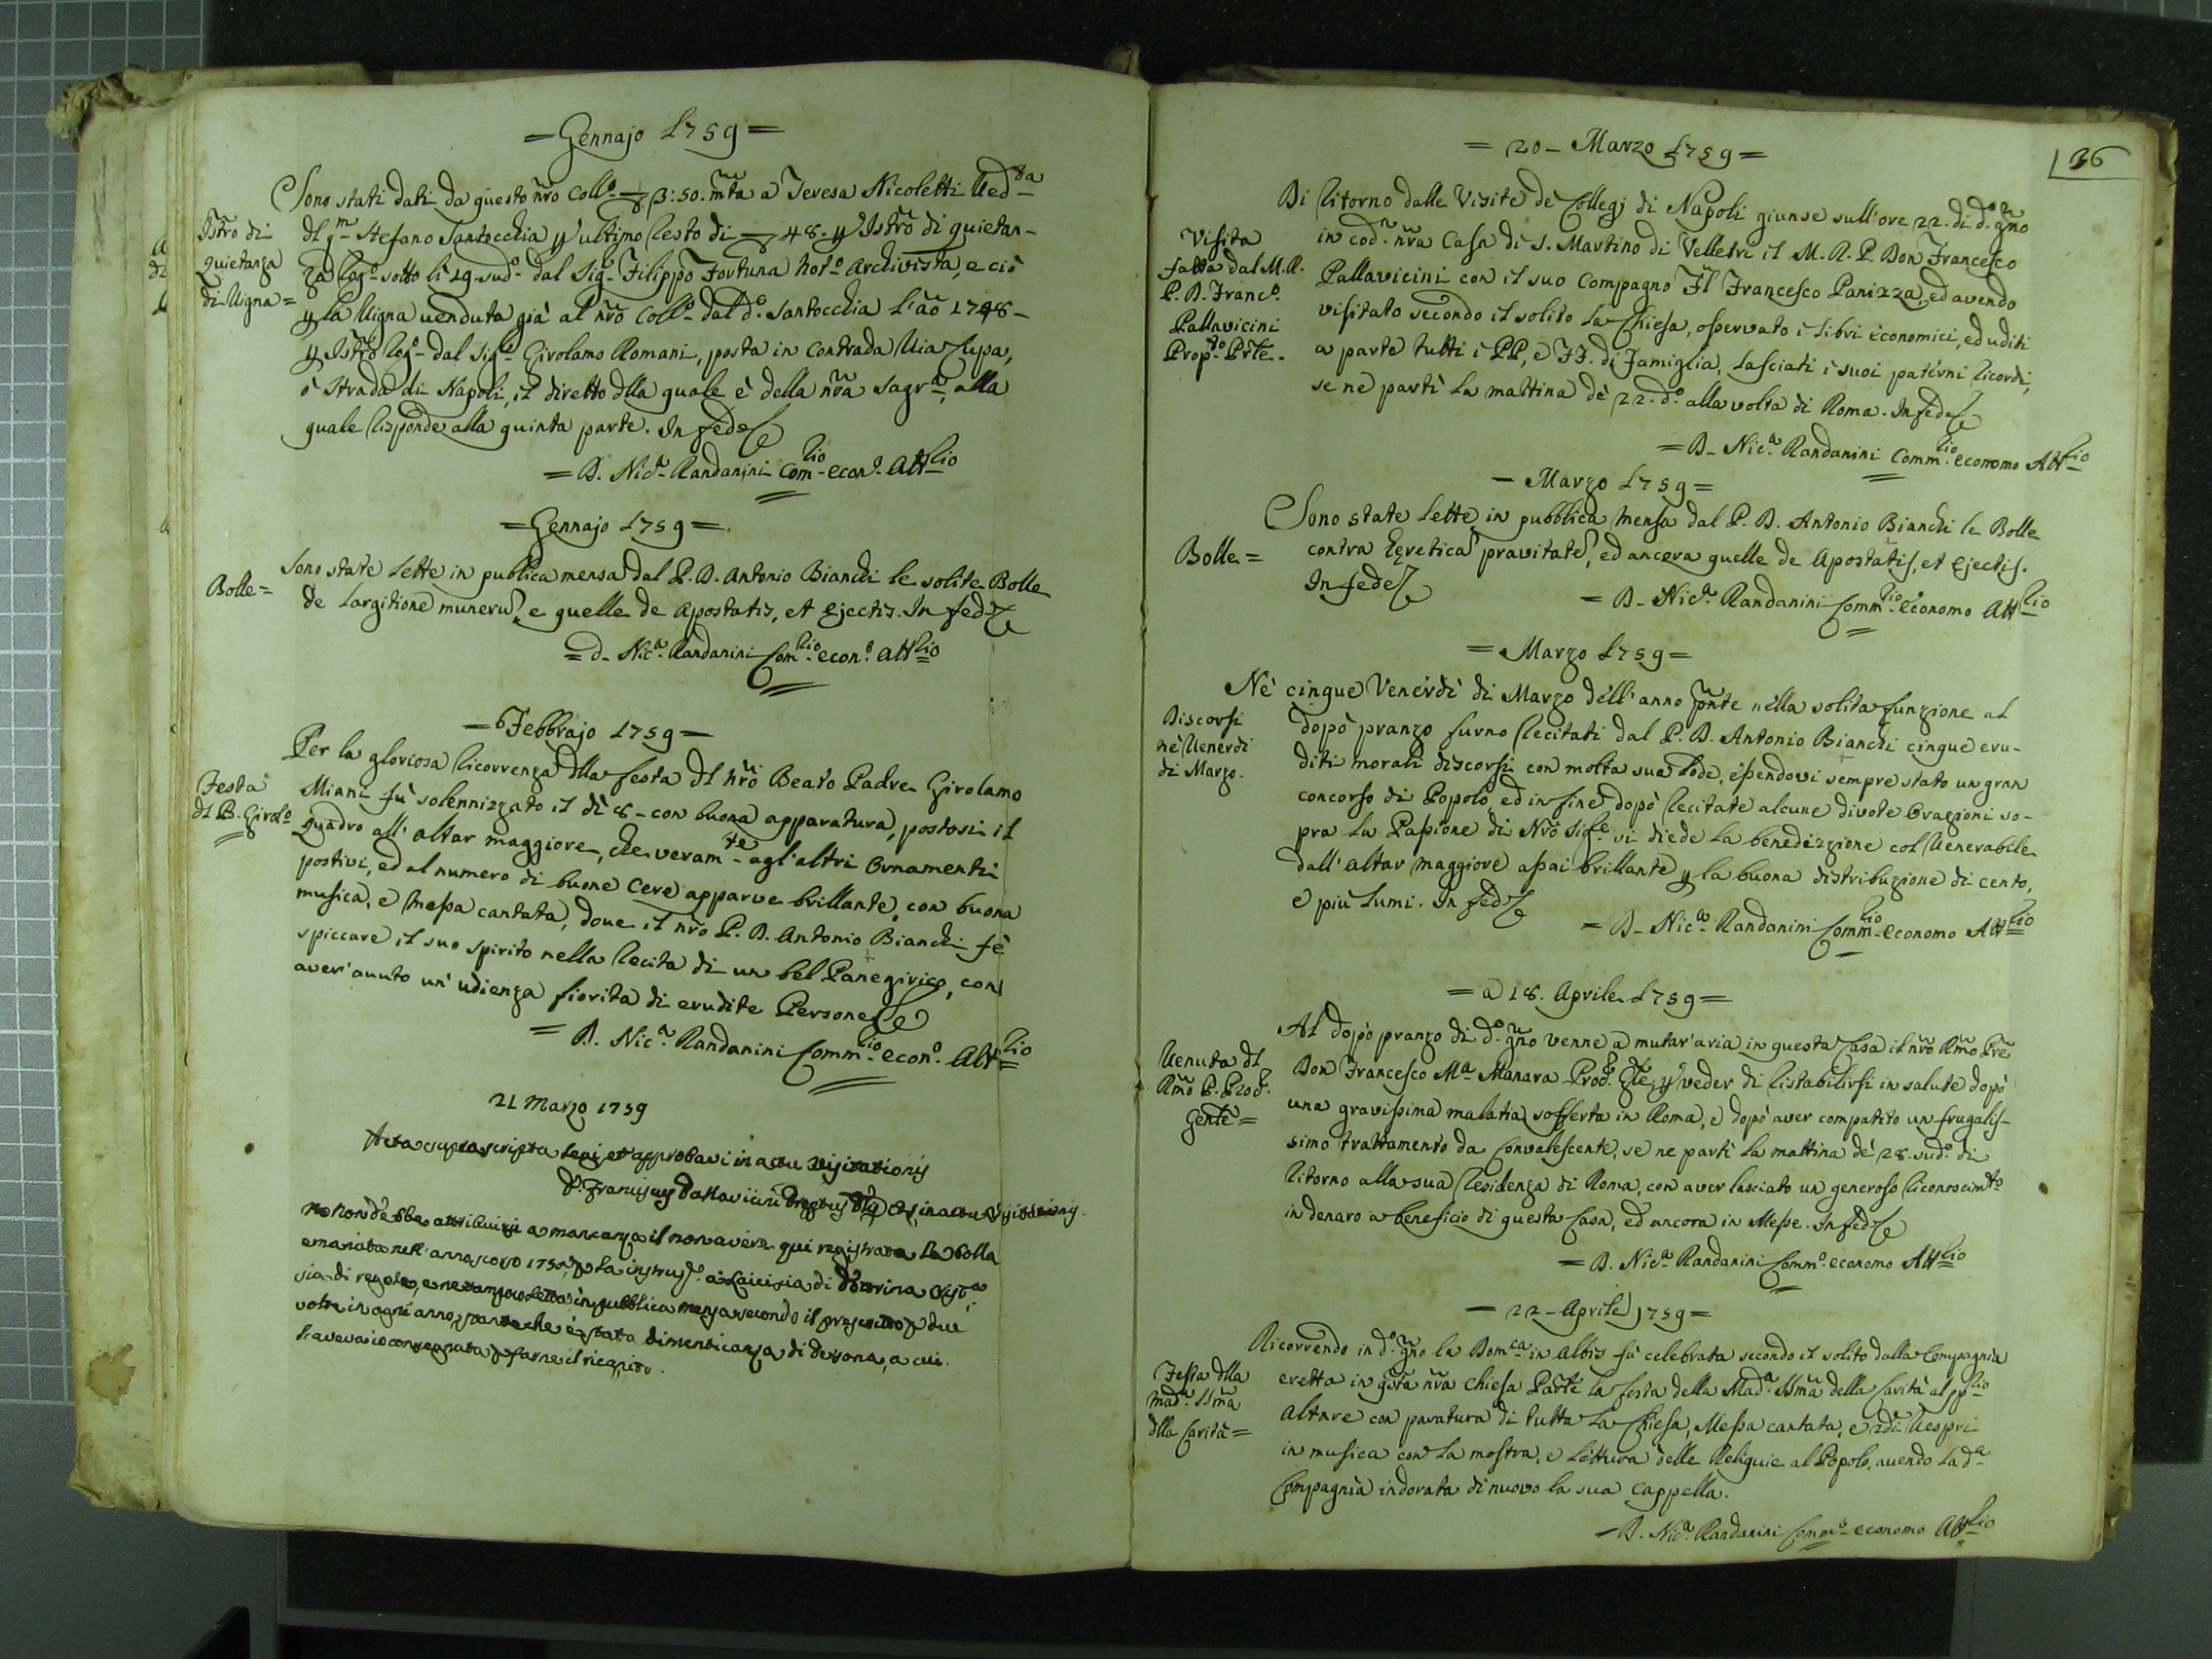 = Gennajo 1759 =
Sono stati dati da questo nrõ Coll.o 3:50. mta a Teresa Nicoletti Ved.va
Istrõ di
quietanza
di Vigna =
dl qm Stefano Santocchia p ultimo resto di 48. p Istrõ di quietan-
za rog.o sotto li 19. sud.o dal Sig. Filippo Fortuna Not.o Archivista, e ciò
p la Vigna venduta già al nrõ Coll.o dal d.o Santocchia l'ão 1748-
p Istrõ rog.o dal Sig.r Girolamo Romani, posta in contrada Via Cupa,
ò Strada di Napoli, il diretto dlla quale è della nrã Sagr.a, alla
quale risponde alla quinta parte. In fede
= D. Nic.a Randanini Com.rio econ.o Att.rio
= Gennajo 1759 =
Bolle =
Sono state lette in publica mensa dal P. D. Antonio Bianchi le solite Bolle
de largitione muneru, e quelle de Apostatis, et Ejectis. In fede
= D. Nic.a Randanini Com.rio econ.o Att.rio
= Febbrajo 1759 =
Festa
dl B. Girol.o
Per la gloriosa ricorrenza dlla festa dl nrõ Beato Padre Girolamo
Miani fù solennizzato il dì 8 - con buona apparatura, postosi il
quadro all'altar maggiore, che veram.te agl'altri ornamenti
postivi, ed al numero di buone cere apparve brillante, con buona
musica, e Messa cantata, dove il nrõ P. D. Antonio Bianchi fè
spiccare il suo spirito nella recita di un bel Panegirico, con
aver'avuto un'udienza fiorita di erudite Persone
= D. Nic.a Randanini Comm.rio econ.o Att.rio
21 Marzo 1759
Acta suprascripta legi, et approbavi in actu visitationis
D. Franciscus Pallavicini in actu visitationis.
non debba attribuirsi a mancanza il non avere qui registrata la bolla
emanata nell'anno scorso 1758 p la instruz.e di dottrina
sia di regole, e ne tampoco letta in pubblica mensa secondo il prescritto p due
volte in ogni anno, stante che è stata dimenticanza di persona, a cui
l'aveva io consegnata p farne il
136
= 20 - Marzo 1759 =
Visita
fatta dal M. R.
P. D. Franc.o
Pallavicini
Prop.to
Di ritorno dalle Visite de Collegj di Napoli giunse sull'ore 22. di d.o gño
in cod.a nrã Casa di S. Martino di Velletri il M. R. P. Don Francesco
Pallavicini con il suo compagno Fl Francesco Panizza, ed avendo
visitato secondo il solito la Chiesa, osservato i libri economici, ed uditi
a parte tutti i PP, e FF. di famiglia, lasciati i suoi paterni ricordi,
se ne partì la mattina dè 22. d.o alla volta di Roma. In fede
= D. Nic.a Randanini Comm.rio economo Att.rio
- Marzo 1759 =
Bolle =
Sono state lette in pubblica mensa dal P. D. Antonio Bianchi le Bolle
contra heretica pravitate, ed ancora quelle de Apostatis, et Ejectis.
In fede
= D. Nic.a Randanini Comm.rio economo Att.rio
= Marzo 1759 =
Discorsi
nè Venerdì
di Marzo.
Nè cinque Venerdì di Marzo dell'anno pñte nella solita funzione al
dopò pranzo furno recitati dal P. D. Antonio Bianchi cinque eru-
diti morali discorsi con molta sua lode, essendovi sempre stato un gran
concorso di Popolo, ed in fine dopò recitate alcune divote Orazioni so-
pra la Passione di Nrõ Sig.re si diede la benedizzione col Venerabile
dall'altar maggiore assai brillante p la buona distribuzione di cento,
e più lumi. In fede
= D. Nic.a Randanini Comm.rio economo Att.rio
= a 18. Aprile 1759 =
Venuta dl
Rmõ P. Prod.
Gente =
Al dopò pranzo di d.o gño venne a mutar'aria in questa Casa il nrõ Rmõ Pre
Don Francesco M.a Manara Prod. Gle, p veder di ristabilirsi in salute dopò
una gravissima malatia sofferta in Roma, e dopò aver compatito un frugalis-
simo trattamento da convalescente, se ne partì la mattina dè 28. sud.o di
ritorno alla sua residenza di Roma, con aver lasciato un generoso riconoscim.to
in denaro a beneficio di questa Casa, ed ancora in Messe. In fede
= D. Nic.a Randanini Comm.o economo Att.rio
= 22 - Aprile 1759 =
Festa dlla
Mad.a SSmã
dlla Carità =
Ricorrendo in d.o gño la Dom.ca in Albis fù celebrata secondo il solito dalla Compagnia
eretta in qsta nrã Chiesa la festa della Mad.a SSmã della Carità al pp.rio
Altare con paratura di tutta la Chiesa, Messa cantata, e 2di Vespri
in musica con la mostra, e lettura delle Reliquie al Popolo, avendo la d.a
Compagnia indorata di nuovo la sua cappella.
= D. Nic.a Randanini Comm.o economo Att.rio